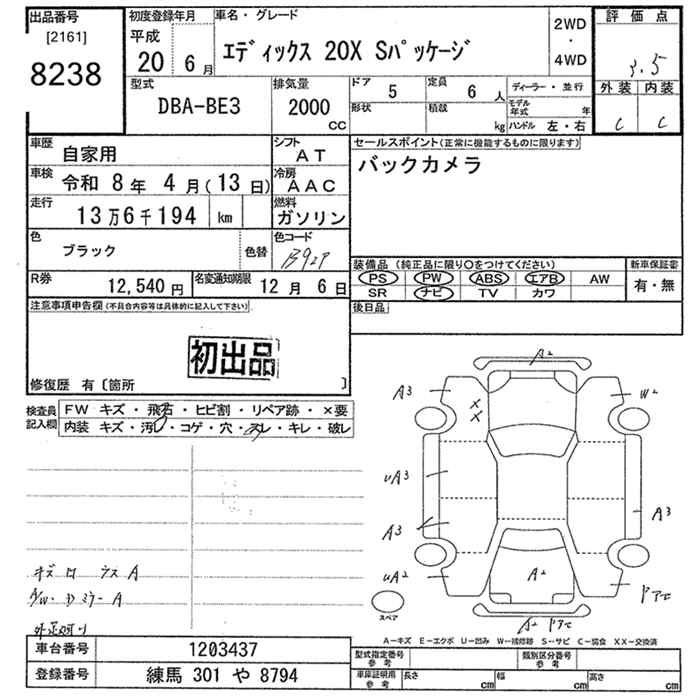 出品番号
[2161]
8238
初度登録年月
平成
20 6月
車名・グレード
エディックス 20X Sパッケージ
2WD
・
4WD
評価点
3.5
外装 内装
C C
型式
DBA-BE3
排気量
2000
CC
ドア 5
定員 6 人
ディーラー・並行
形状
積載 kg
モデル年式 年
ハンドル 左・右
車歴 自家用
シフト AT
車検 令和 8年 4月(13日)
冷房 AAC
走行 13万6千194 km
燃料 ガソリン
色 ブラック 色替
色コード B92P
R券 12,540円
名変通知期限 12月 6日
セールスポイント(正常に機能するものに限ります)
バックカメラ
装備品 (純正品に限り○をつけてください)
PS PW ABS エアB AW
SR ナビ TV カワ
新車保証書
有・無
後日品
注意事項申告欄(不具合内容等は具体的に記入して下さい)
初出品
修復歴 有〔箇所 〕
検査員記入欄
FW キズ・飛石・ヒビ割・リペア跡・×要
内装 キズ・汚レ・コゲ・穴・スレ・キレ・破レ
A2
A3
W2
X
X
uA3
A3
A3
uA2
A2
A2
スペア
キズ
A
A
A-キズ E-エクボ U-凹み W-補修跡 S-サビ C-腐食 XX-交換済
車台番号 1203437
登録番号 練馬 301 や 8794
型式指定番号 参考
類別区分番号 参考
車庫証明用 参考
長さ cm
幅 cm
高さ cm